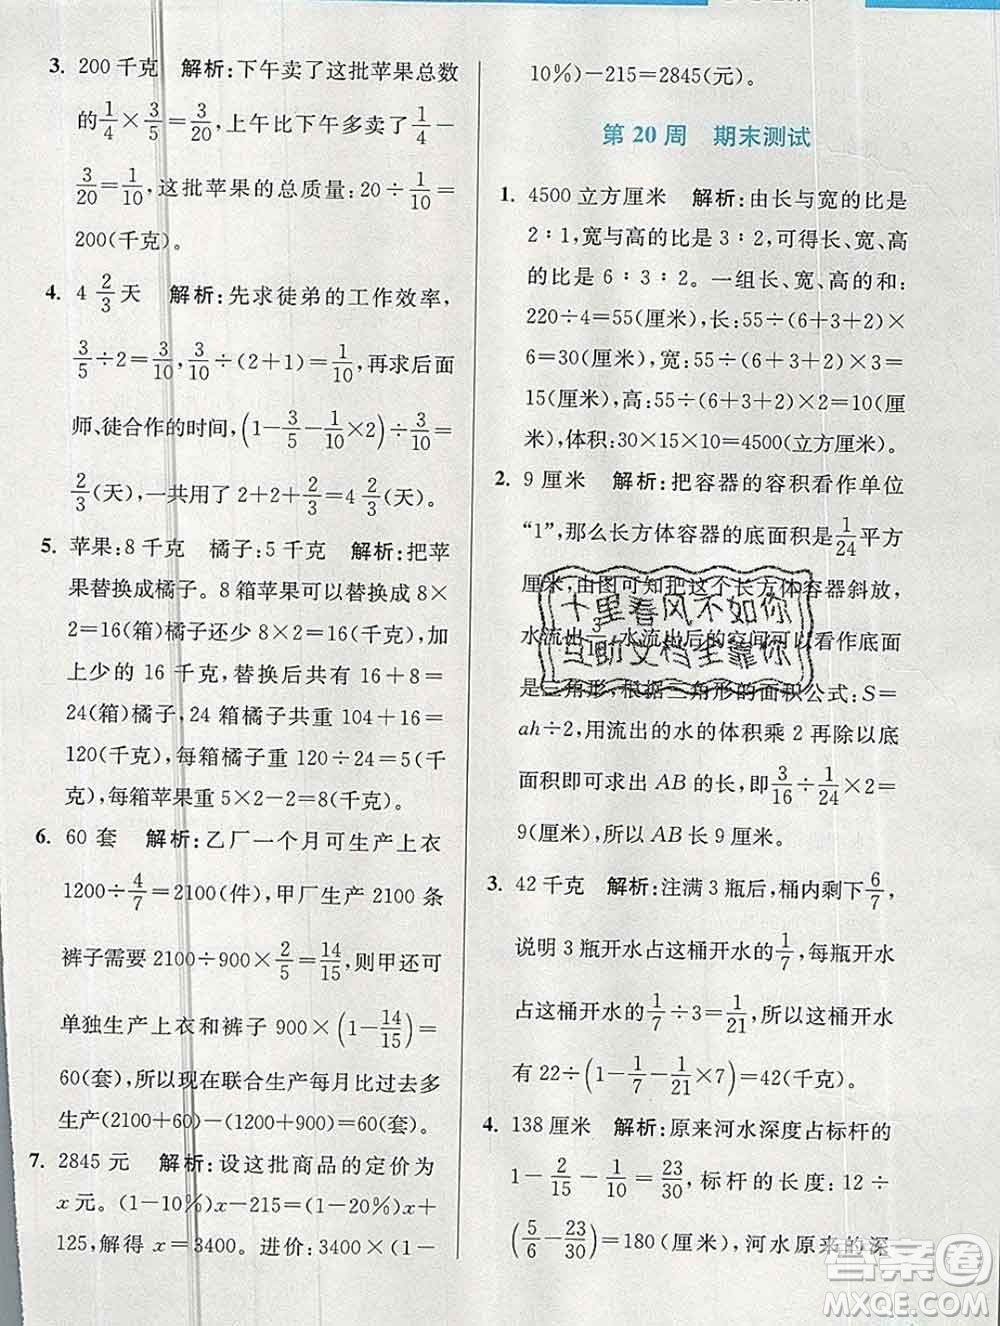 3. 200 千克 解析:下午卖了这批苹果总数
的 1/4 × 3/5 = 3/20,上午比下午多卖了 1/4 −
3/20 = 1/10,这批苹果的总质量:20 ÷ 1/10 =
200(千克)。
4. 4 2/3 天 解析:先求徒弟的工作效率,
3/5 ÷ 2 = 3/10, 3/10 ÷ (2+1) = 1/10,再求后面
师、徒合作的时间,(1 − 3/5 − 1/10 × 2) ÷ 3/10 =
2/3(天),一共用了 2+2+ 2/3 = 4 2/3(天)。
5. 苹果:8 千克 橘子:5 千克 解析:把苹
果替换成橘子。8 箱苹果可以替换成 8×
2=16(箱)橘子还少 8×2=16(千克),
加上少的 16 千克,替换后共 16+8=
24(箱)橘子,24 箱橘子共重 104+16=
120(千克),每箱橘子重 120÷24=5(千
克),每箱苹果重 5×2−2=8(千克)。
6. 60 套 解析:乙厂一个月可生产上衣
1200 ÷ 4/7 = 2100(件),甲厂生产 2100 条
裤子需要 2100÷900× 2/5 = 14/15,则甲还可
单独生产上衣和裤子 900×(1 − 14/15)=
60(套),所以现在联合生产每月比过去多
生产(2100+60)−(1200+900)=60(套)。
7. 2845 元 解析:设这批商品的定价为
x 元。(1−10%)x−215=(1−20%)x+
125,解得 x=3400。进价:3400×(1−
10%)−215=2845(元)。
第 20 周 期末测试
1. 4500 立方厘米 解析:由长与宽的比是
2∶1,宽与高的比是 3∶2,可得长、宽、高
的比是 6∶3∶2。一组长、宽、高的和:
220÷4=55(厘米),长:55÷(6+3+2)×
6=30(厘米),宽:55÷(6+3+2)×3=
15(厘米),高:55÷(6+3+2)×2=10(厘
米),体积:30×15×10=4500(立方厘米)。
2. 9 厘米 解析:把容器的容积看作单位
“1”,那么长方体容器的底面积是 1/24 平方
厘米,由图可知把这个长方体容器斜放,
水流出 3/16,水流出后的空间可以看作底面
是三角形,根据三角形的面积公式:S=
ah÷2,用流出的水的体积乘 2 再除以底
面积即可求出 AB 的长,即 3/16 ÷ 1/24 × 2 =
9(厘米),所以 AB 长 9 厘米。
3. 42 千克 解析:注满 3 瓶后,桶内剩下 6/7,
说明 3 瓶开水占这桶开水的 1/7,每瓶开水
占这桶开水的 1/7 ÷ 3 = 1/21,所以这桶开水
有 22÷(1 − 1/7 − 1/21 × 7)=42(千克)。
4. 138 厘米 解析:原来河水深度占标杆的
1 − 2/15 − 1/10 = 23/30,标杆的长度:12 ÷
(5/6 − 23/30)=180(厘米),河水原来的深
十里春风不如你
互助文档坐靠你
答案圈
MXQE.COM